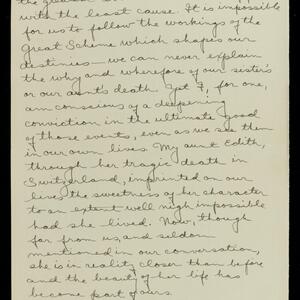 with the least cause. It is impossible
for us to follow the workings of the
Great Scheme which shapes our
destinies – we can never explain
the why and wherefore of our sister's
or our aunt's death. Yet I, for one,
am conscious of a deepening
conviction in the ultimate good
of those events, even as we see them
in our own lives. My aunt Edith,
through her tragic death in
Switzerland, imprinted on our
lives the sweetness of her character
to an extent well nigh impossible
had she lived. Now, though
far from us, and seldom
mentioned in our conversation,
she is in reality closer than before
and the beauty of her life has
become part of ours.